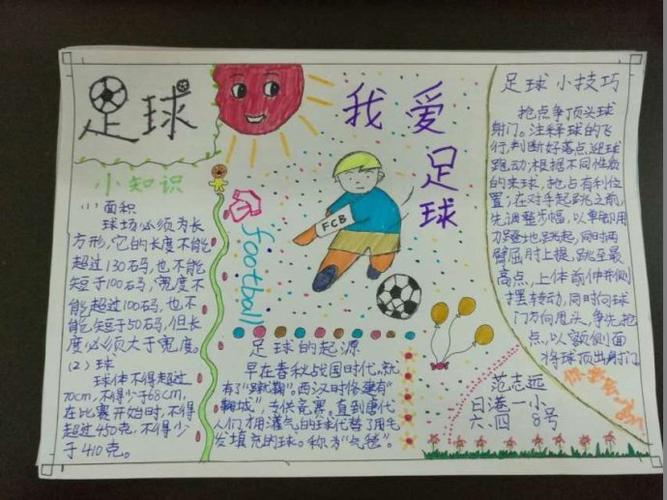 足球
小知识
(1)面积
球场必须为长
方形,它的长度不能
超过130码,也不能
短于100码,宽度不
能超过100码,也不
能短于50码,但长
度必须大于宽度。
(2)球
球体不得超过
70cm,不得少于68cm,
在比赛开始时,不得
超过450克,不得少
于410克。
我爱足球
football
FCB
足球的起源
早在春秋战国时代,就
有了“蹴鞠”。西汉时修建有
“鞠城”,专供竞赛。直到唐代
人们才用灌气的球代替了用毛
发填充的球。称为“气毬”。
足球小技巧
抢点争顶头球
射门。注释球的飞
行,判断好落点,迎球
跑动,根据不同性质
的来球,抢占有利位
置;在对手起跳之前,
先调整步幅,以单脚用
力蹬地跳起,同时两
臂屈肘上提,跳至最
高点,上体前伸并侧
摆转动,同时向球
门方向甩头,争先抢
点,以额侧面
将球顶出射门
范志远
日港一小
六.四 8号